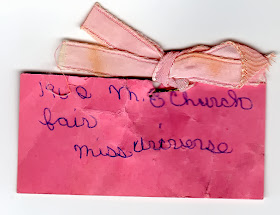 M. E Church
fair
miss Universe